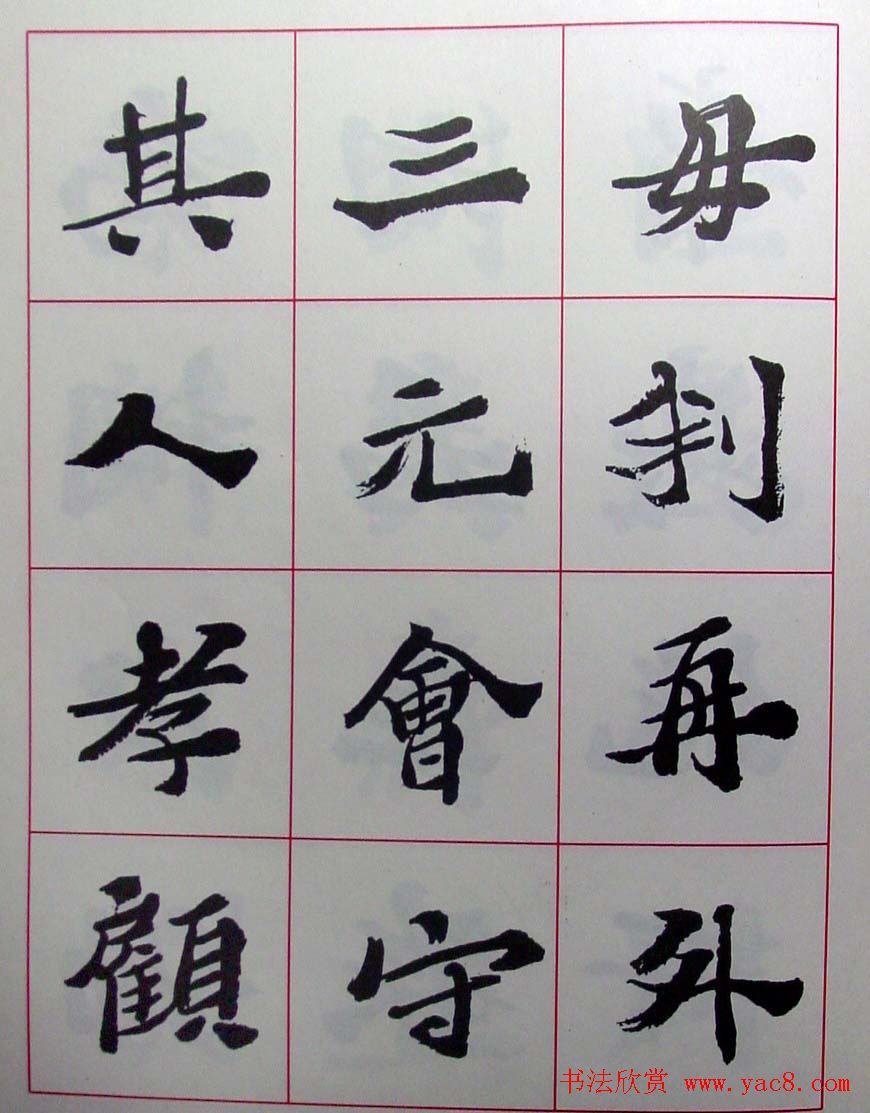 毋再外
三元會守
其人孝顧
书法欣赏 www.yac8.com